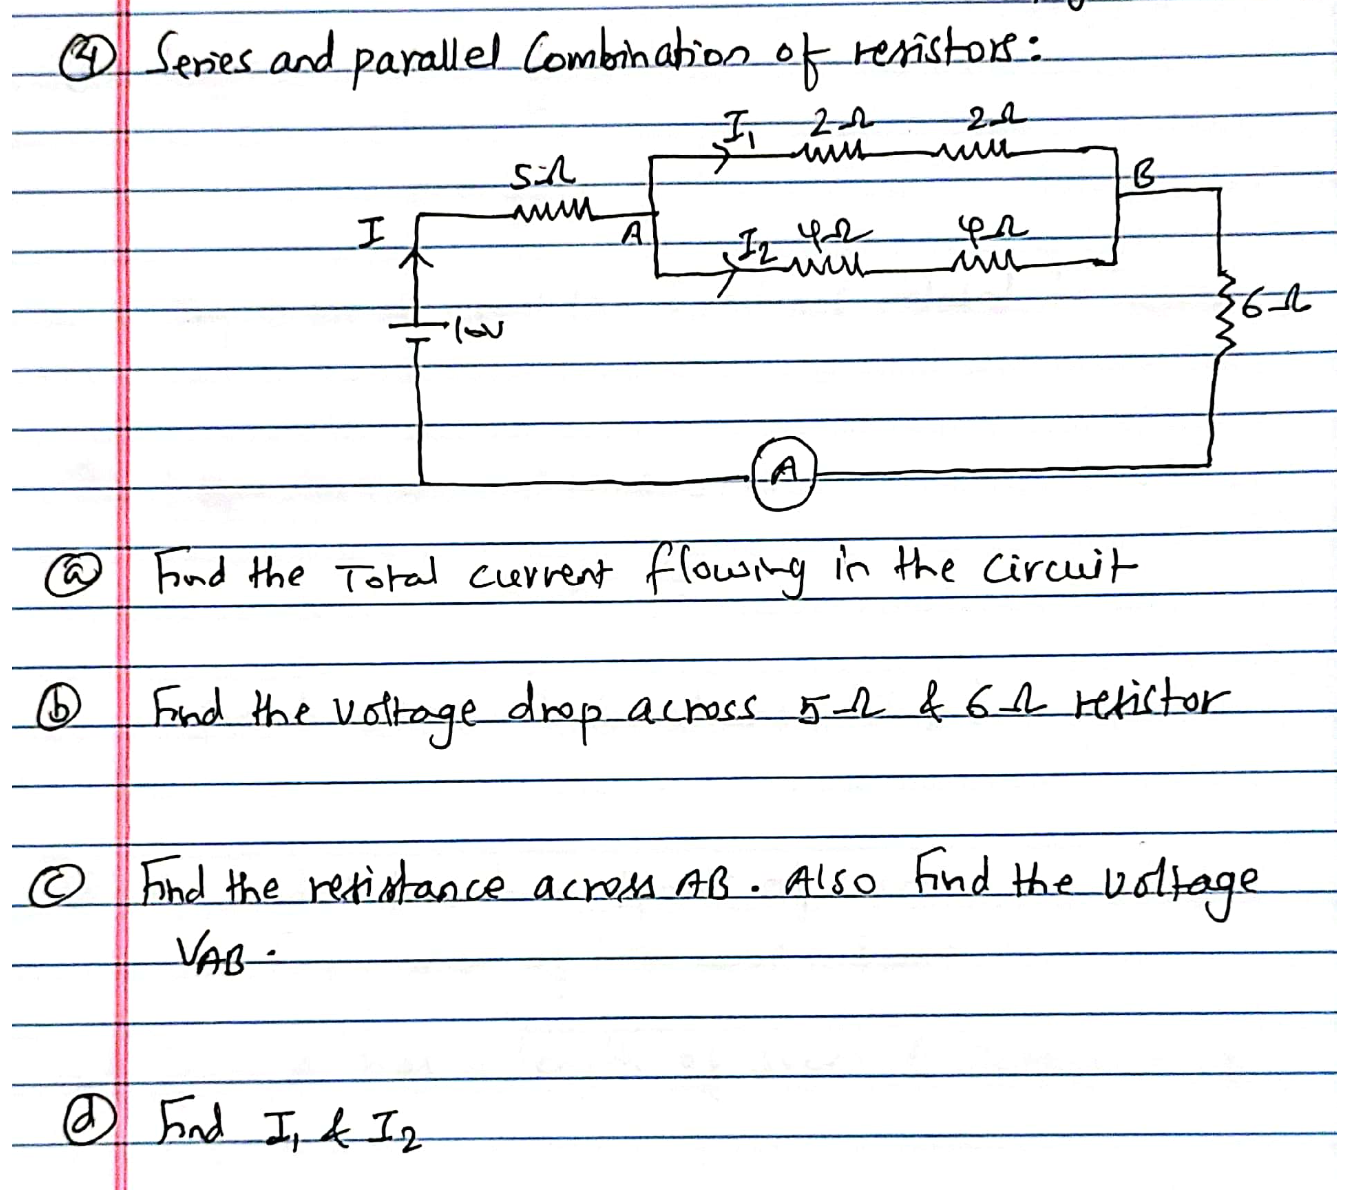 ④ Series and parallel Combination of resistors:
I₁ 2Ω 2Ω
5Ω
B
I
A
I₂ 4Ω 4Ω
6Ω
10V
A
ⓐ Find the Total current flowing in the circuit
ⓑ Find the voltage drop across 5Ω & 6Ω resistor
ⓒ Find the resistance across AB. Also find the voltage
VAB.
ⓓ Find I₁ & I₂